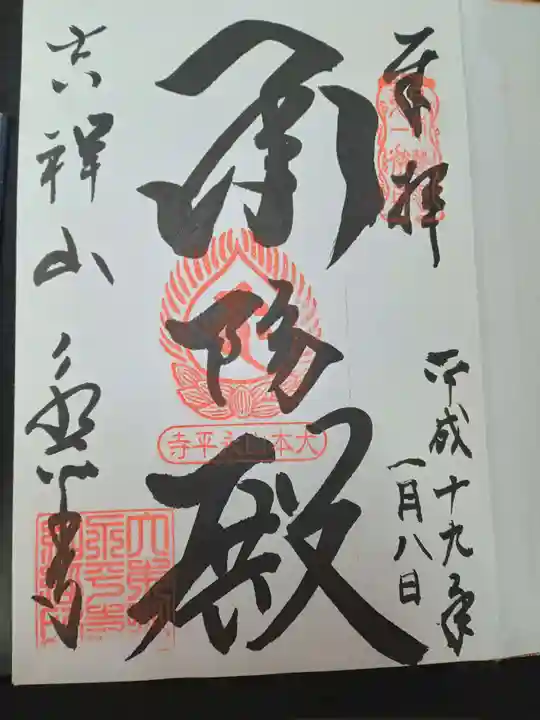 奉拝
平成十九年
一月八日
承陽殿
大本山永平寺
吉祥山 永平寺